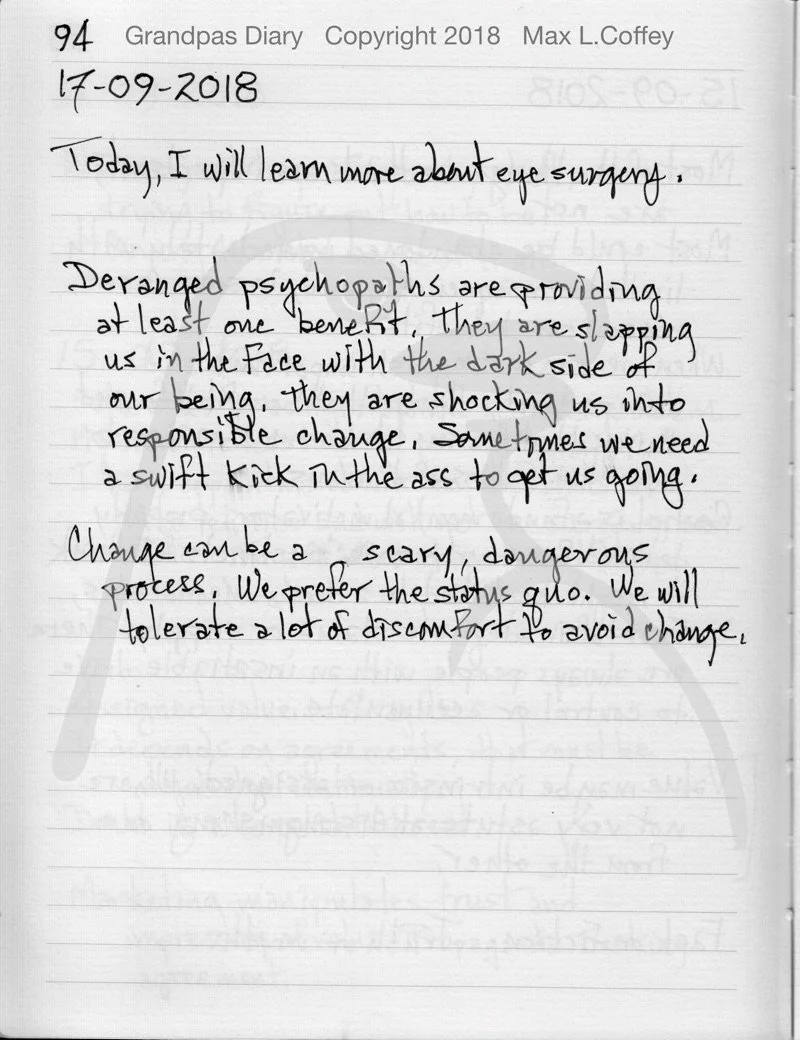 94 Grandpas Diary Copyright 2018 Max L.Coffey
17-09-2018
Today, I will learn more about eye surgery.
Deranged psychopaths are providing
at least one benefit, they are slapping
us in the face with the dark side of
our being, they are shocking us into
responsible change. Sometimes we need
a swift kick in the ass to get us going.
Change can be a scary, dangerous
process. We prefer the status quo. We will
tolerate a lot of discomfort to avoid change.